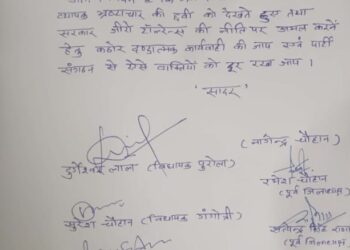 व्यापक भ्रष्टाचार की दृष्टी को देखते हुए तथा
सरकार जीरो टॉलरेन्स की नीति पर अमल करने
हेतु कठोर दण्डात्मक कार्यवाही की जाय एवं पार्टी
संगठन से ऐसे व्यक्तियों को दूर रखा जाय ।
'सादर'
(नागेन्द्र चौहान)
दुर्गेश्वर लाल (विधायक पुरोला)
रमेश चौहान
(पूर्व जिलाध्यक्ष)
सुरेश चौहान (विधायक गंगोत्री)
सत्येन्द्र सिंह राणा
(पूर्व जिलाध्यक्ष)